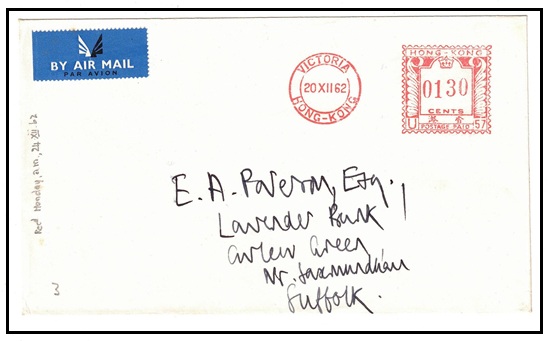 BY AIR MAIL
PAR AVION
VICTORIA
20 XII 62
HONG-KONG
HONG-KONG
0130
CENTS
U POSTAGE PAID 57
Recd Monday, a.m., 24 XII 62
E. A. Esq.,
Lavender Bank,
Green,
Nr. Saxmundham
Suffolk.
3